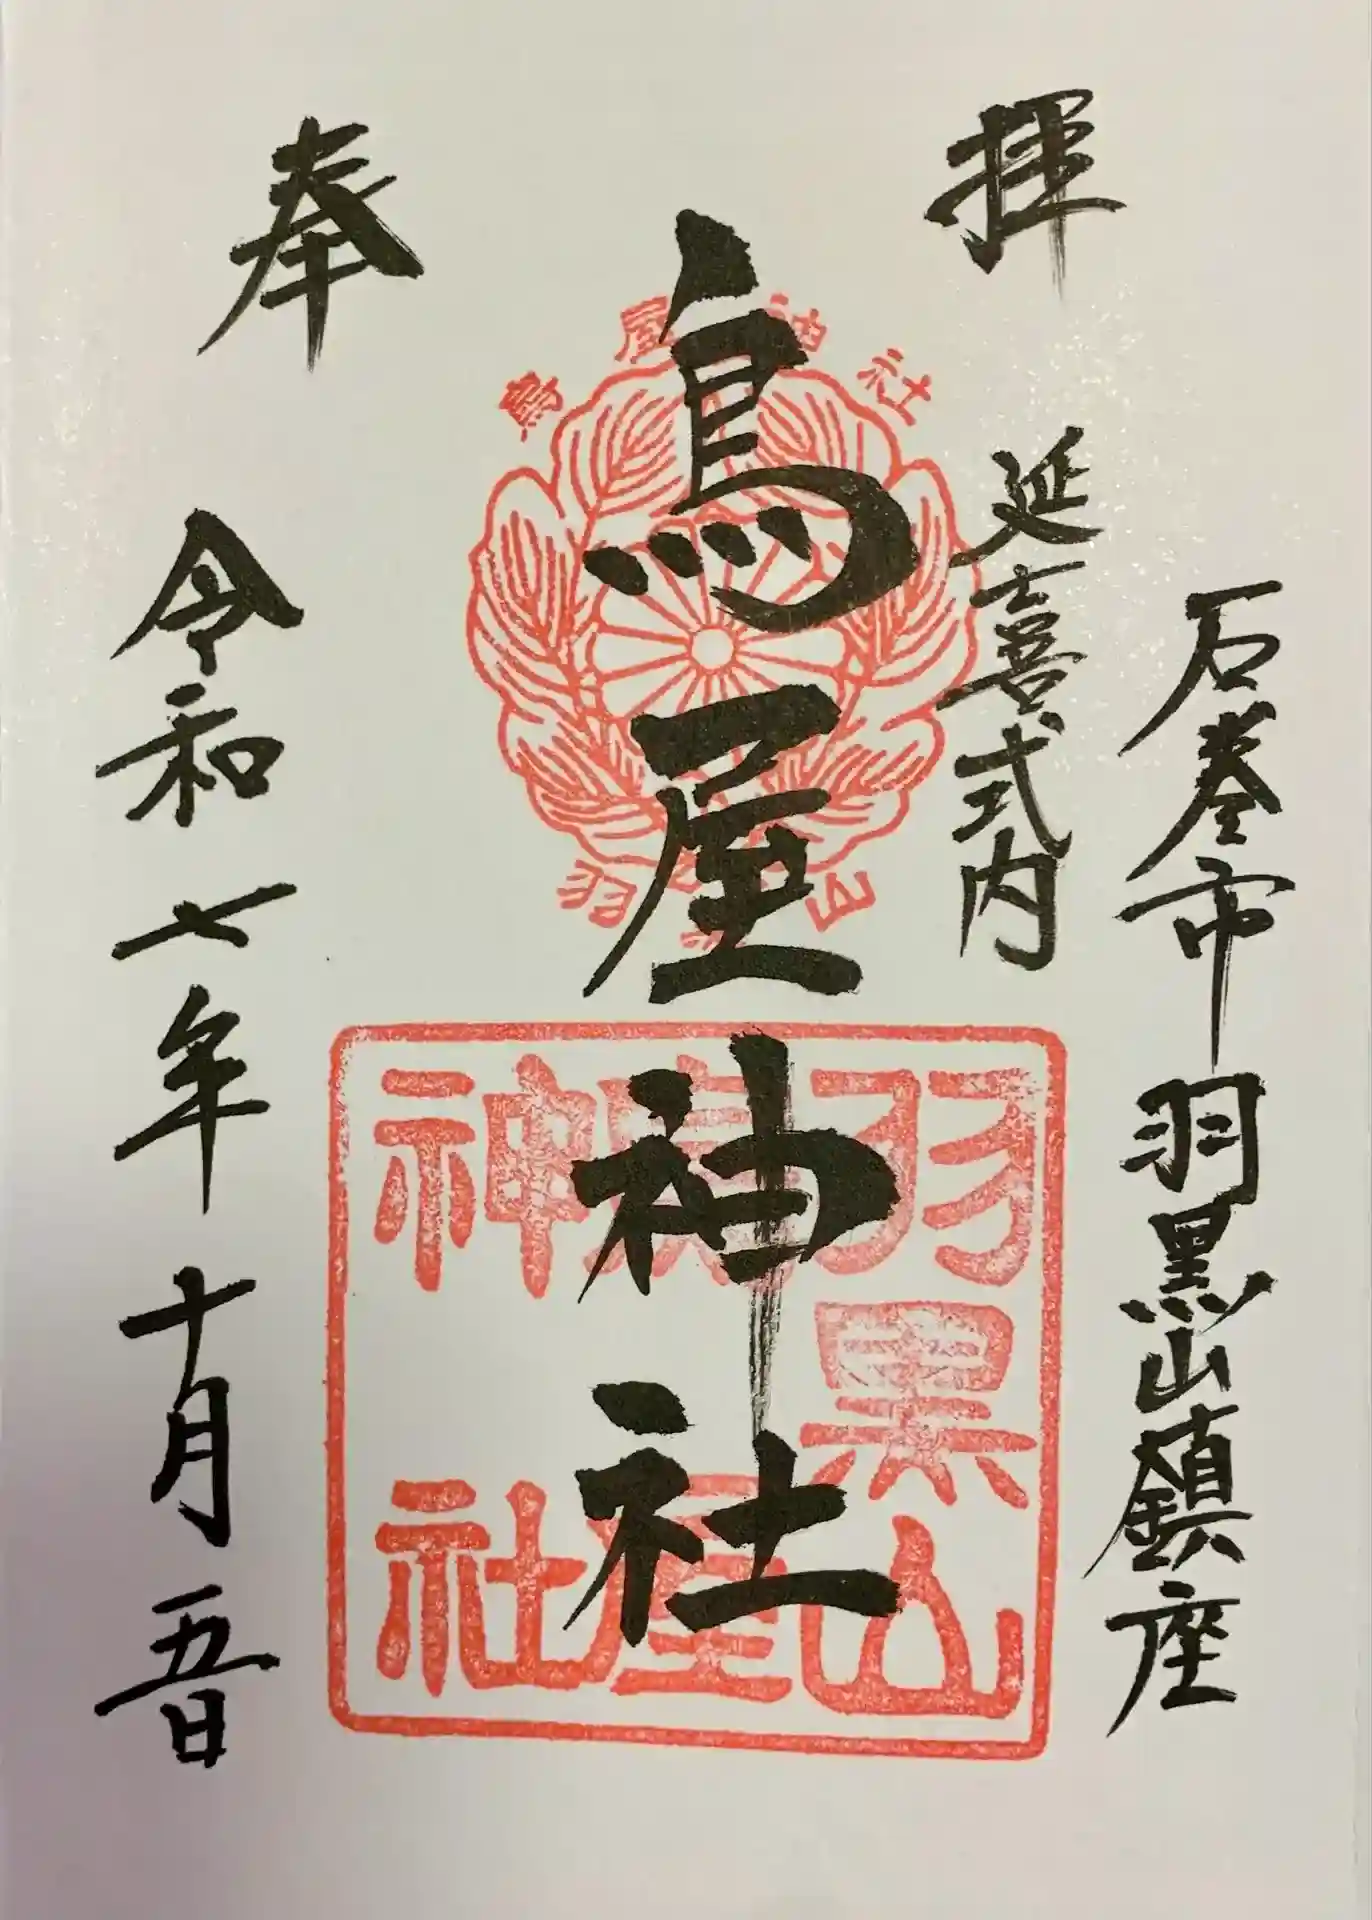 奉
拝
石巻市羽黒山鎮座
延喜式内
鳥屋神社
令和七年十月五日
鳥屋神社
羽黒山
羽黒山
鳥屋
神社